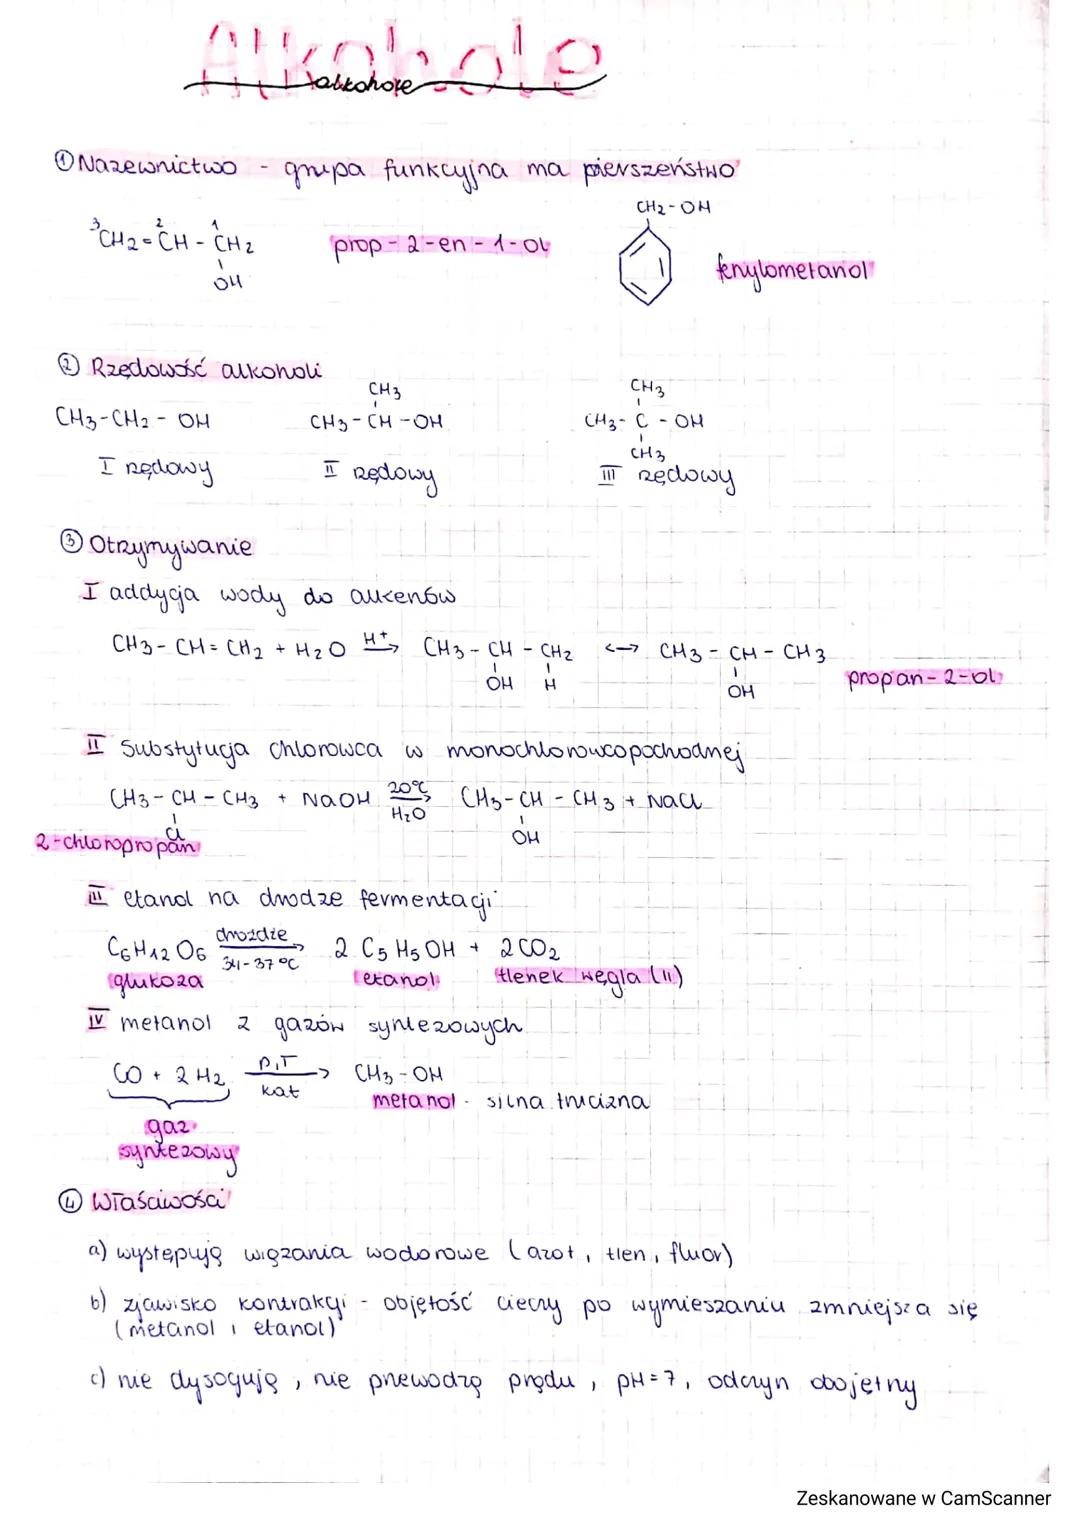 Alkohole
alkohole
① Nazewnictwo - grupa funkcyjna ma pierszeństwo
CH2-OH
3 2 1
CH2=CH-CH2
OH
prop-2-en-1-ol
fenylometanol
② Rzędowość alkoholi
CH3 CH3
CH3-CH2-OH CH3-CH-OH CH3-C-OH
CH3
I rzędowy II rzędowy III rzędowy
③ Otrzymywanie
I addycja wody do alkenów
CH3-CH=CH2 + H2O H+→ CH3-CH-CH2 <-> CH3-CH-CH3
OH H OH
propan-2-ol
II Substytucja chlorowca w monochlorowcopochodnej
CH3-CH-CH3 + NaOH 20°C→ H2O CH3-CH-CH3 + NaCl
Cl OH
2-chloropropan
III etanol na drodze fermentacji
C6H12O6 drożdże→ 34-37°C 2 C5H5OH + 2CO2
glukoza etanol tlenek węgla (II)
IV metanol z gazów syntezowych
CO + 2H2 p,T→ kat CH3-OH
metanol - silna trucizna
gaz
syntezowy
④ Właściwości
a) występują wiązania wodorowe (azot, tlen, fluor)
b) zjawisko kontrakcji - objętość cieczy po wymieszaniu zmniejsza się
(metanol i etanol)
c) nie dysocjują, nie przewodzą prądu, pH=7, odczyn obojętny
Zeskanowane w CamScanner